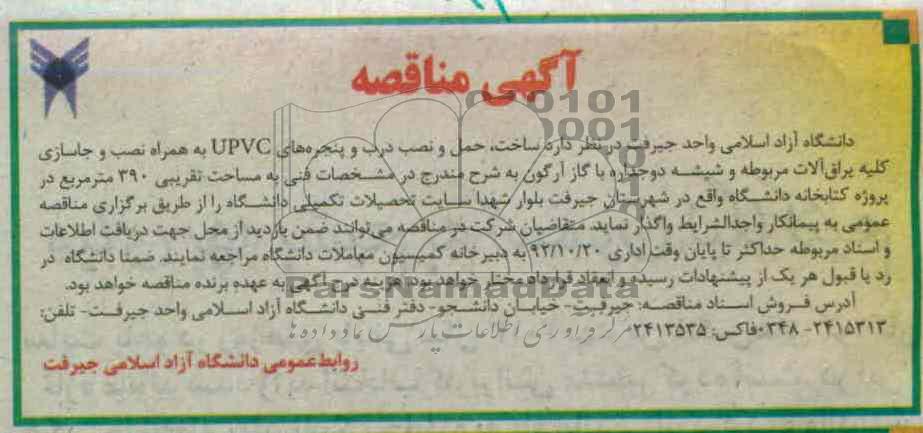 آگهی مناقصه
دانشگاه آزاد اسلامی واحد جیرفت در نظر دارد ساخت، حمل و نصب درب و پنجره‌های UPVC به همراه نصب و جاسازی
کلیه یراق‌آلات مربوطه و شیشه دوجداره با گاز آرگون به شرح مندرج در مشخصات فنی به مساحت تقریبی ۳۹۰ مترمربع در
پروژه کتابخانه دانشگاه واقع در شهرستان جیرفت بلوار شهدا سایت تحصیلات تکمیلی دانشگاه را از طریق برگزاری مناقصه
عمومی به پیمانکار واجدالشرایط واگذار نماید. متقاضیان شرکت در مناقصه می‌توانند ضمن بازدید از محل جهت دریافت اطلاعات
و اسناد مربوطه حداکثر تا پایان وقت اداری ۹۲/۱۰/۲۰ به دبیرخانه کمیسیون معاملات دانشگاه مراجعه نمایند. ضمنا دانشگاه در
رد یا قبول هر یک از پیشنهادات رسیده و انعقاد قرارداد مختار خواهد بود. هزینه درج آگهی به عهده برنده مناقصه خواهد بود.
آدرس فروش اسناد مناقصه: جیرفت- خیابان دانشجو- دفتر فنی دانشگاه آزاد اسلامی واحد جیرفت- تلفن:
۲۴۱۵۳۱۳- ۰۳۴۸فاکس: ۲۴۱۳۵۳۵
روابط عمومی دانشگاه آزاد اسلامی جیرفت
ParsNamadData
مرکز فرآوری اطلاعات پارس نماد داده‌ها